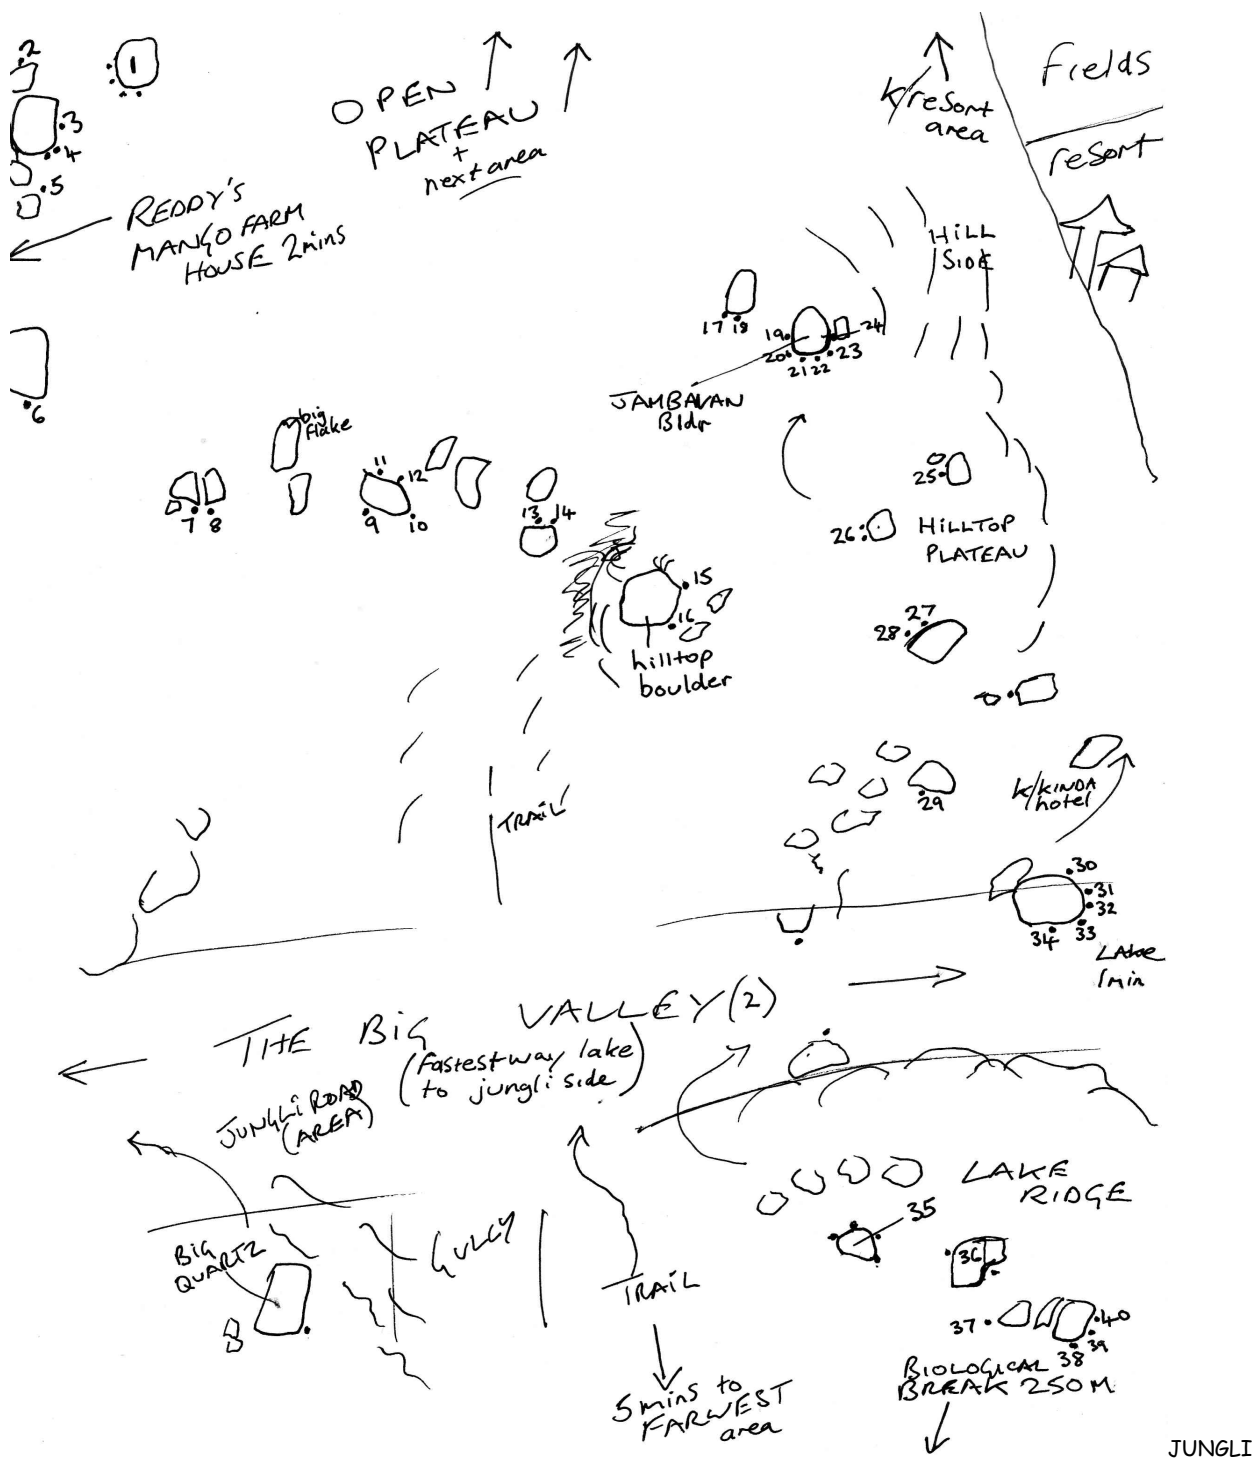 2
1
OPEN
PLATEAU
+
next area
K/resort
area
Fields
resort
3
4
5
REDDY'S
MANGO FARM
HOUSE 2mins
HILL
SIDE
17 18
19
20
21 22
23
24
JAMBAVAN
Bldr
6
big
flake
11
12
7 8
9
10
13 14
25
26
HILLTOP
PLATEAU
15
16
hilltop
boulder
27
28
29
TRAIL
K/KINDA
hotel
30
31
32
33
34
LAKE
1min
THE BIG VALLEY (2)
(fastest way lake
to jungli side)
JUNGLI ROAD
(AREA)
LAKE
RIDGE
35
BIG
QUARTZ
GULLEY
36
TRAIL
37
38
39
40
BIOLOGICAL
BREAK 250M
5 mins to
FARWEST
area
JUNGLI